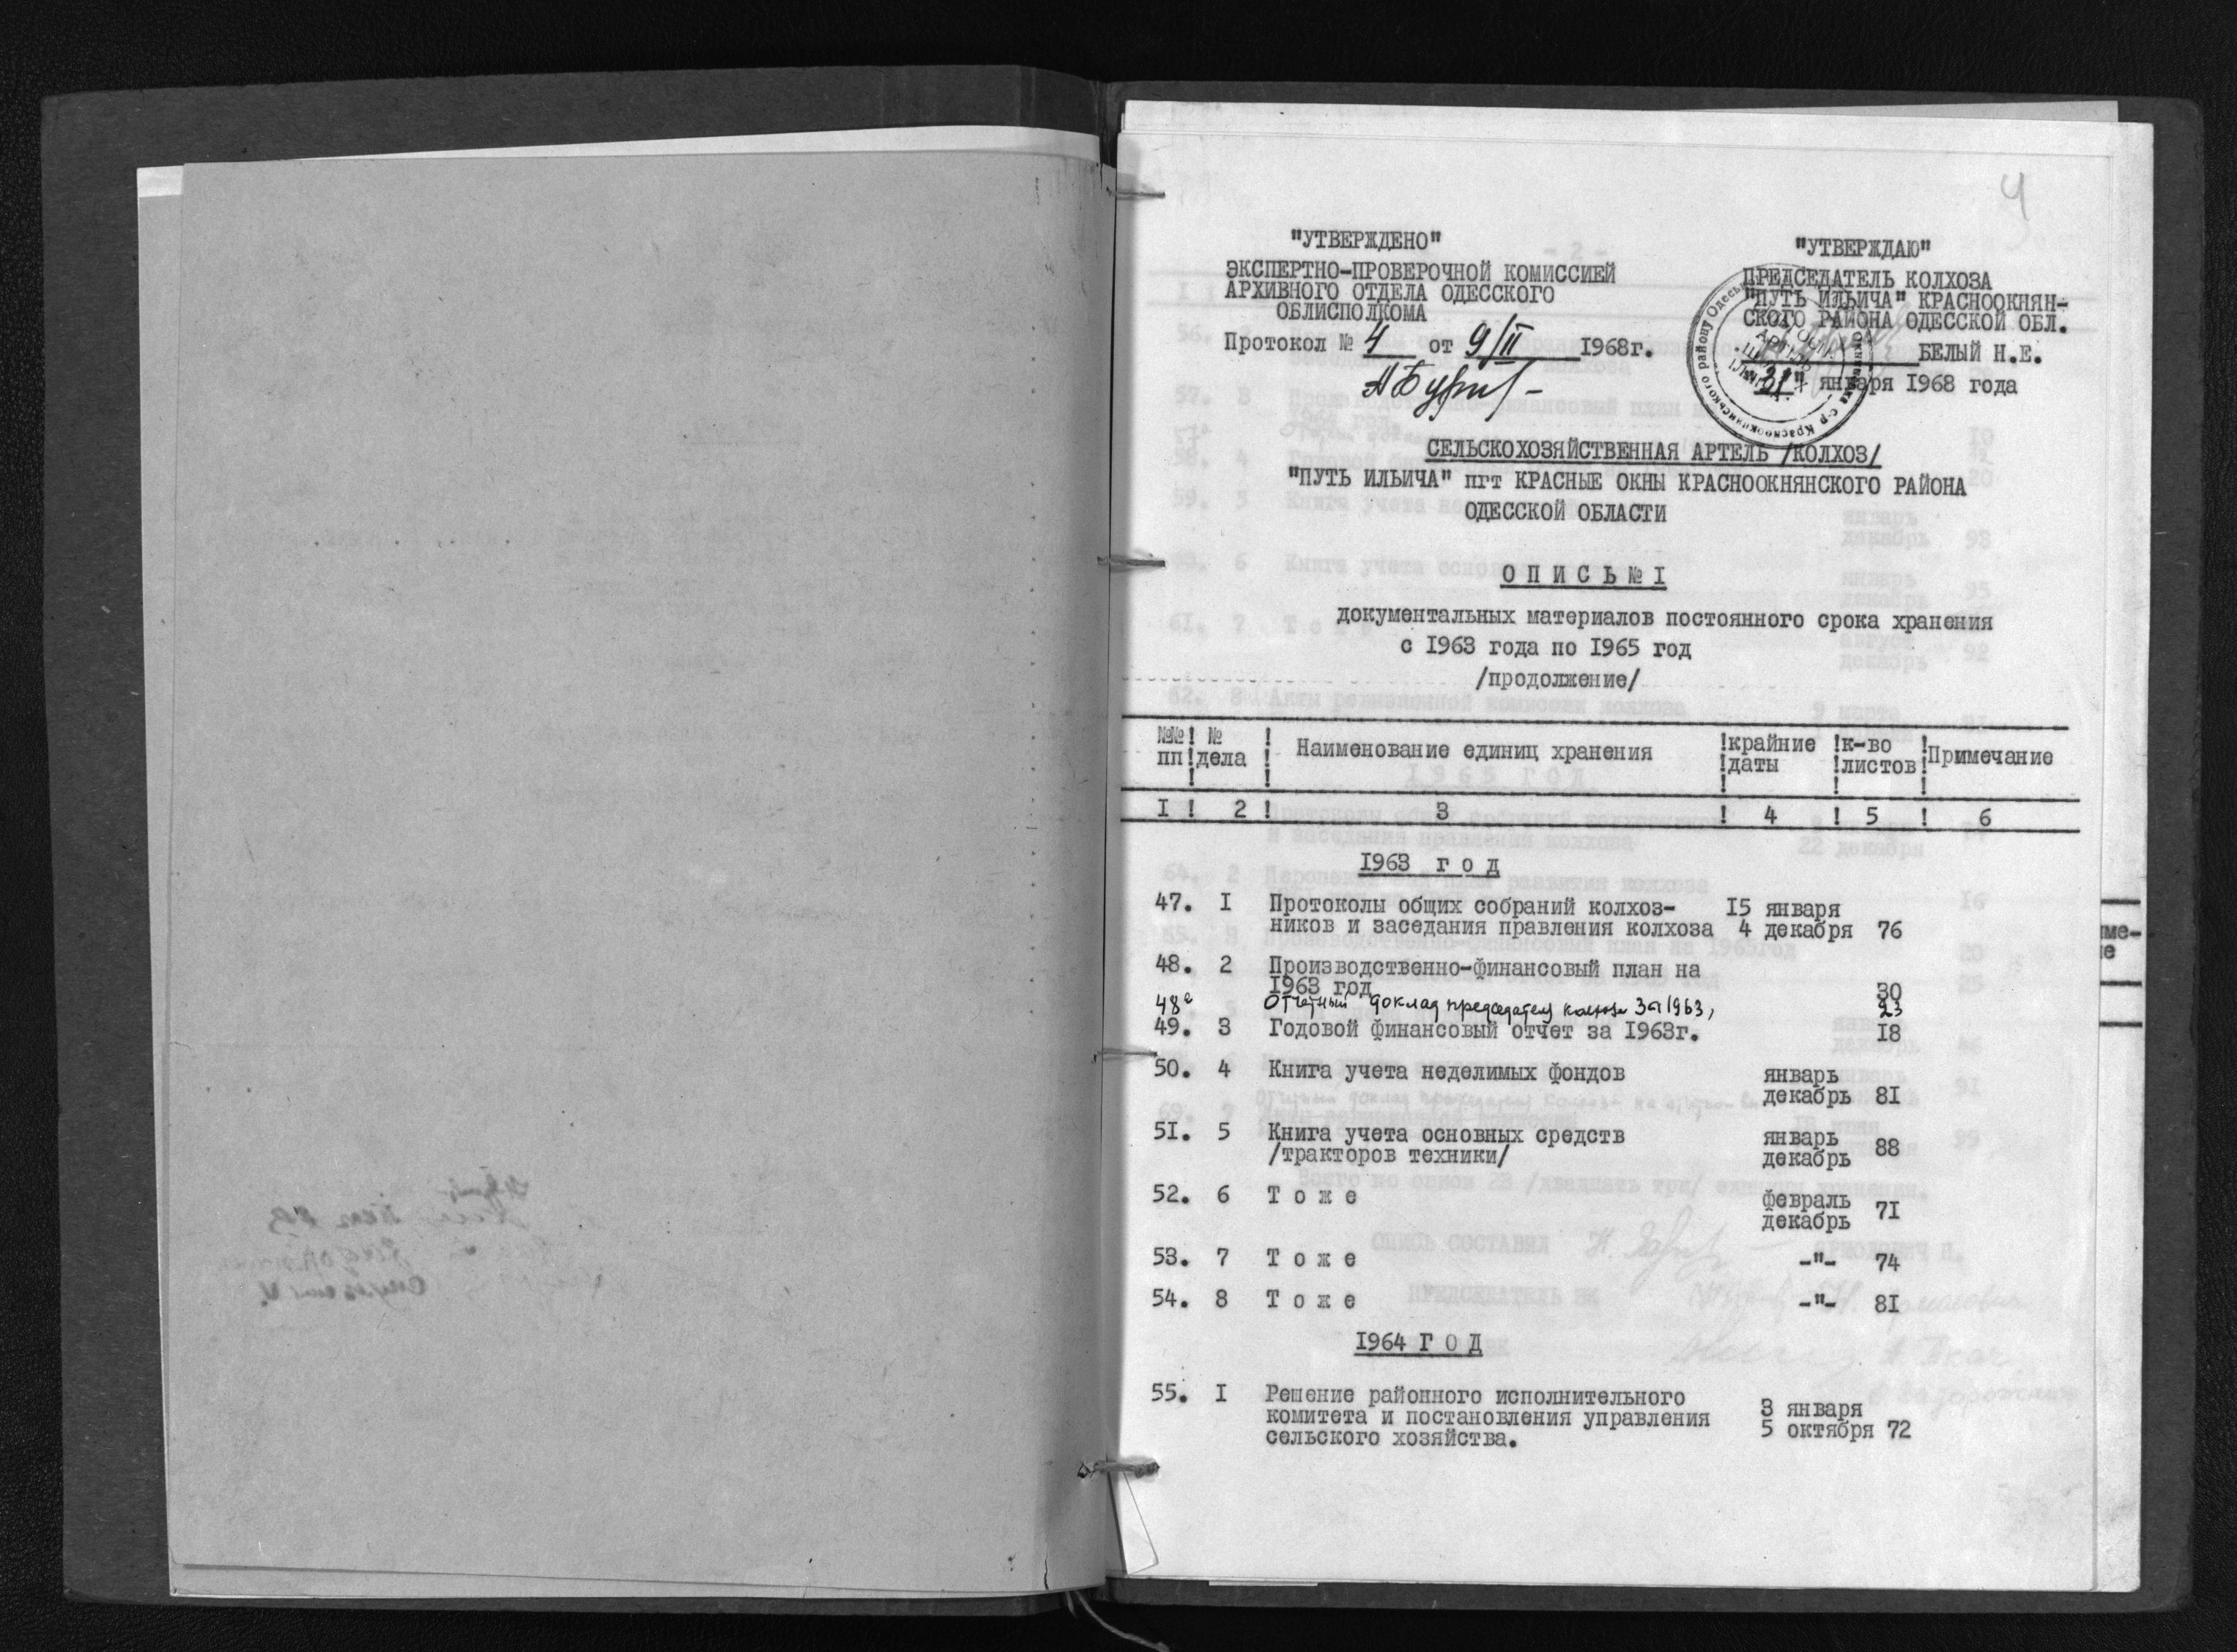 4
"УТВЕРЖДЕНО"
ЭКСПЕРТНО-ПРОВЕРОЧНОЙ КОМИССИЕЙ
АРХИВНОГО ОТДЕЛА ОДЕССКОГО
ОБЛИСПОЛКОМА
Протокол № 4 от 9/II 1968г.
"УТВЕРЖДАЮ"
ПРЕДСЕДАТЕЛЬ КОЛХОЗА
"ПУТЬ ИЛЬИЧА" КРАСНООКНЯН-
СКОГО РАЙОНА ОДЕССКОЙ ОБЛ.
БЕЛЫЙ Н.Е.
"31" января 1968 года
СЕЛЬСКОХОЗЯЙСТВЕННАЯ АРТЕЛЬ /КОЛХОЗ/
"ПУТЬ ИЛЬИЧА" пгт КРАСНЫЕ ОКНЫ КРАСНООКНЯНСКОГО РАЙОНА
ОДЕССКОЙ ОБЛАСТИ
О П И С Ь № I
документальных материалов постоянного срока хранения
с 1963 года по 1965 год
/продолжение/
№№ ! № ! Наименование единиц хранения !крайние !к-во !Примечание
пп !дела ! !даты !листов!
I ! 2 ! 3 ! 4 ! 5 ! 6
1963 г о д
47. I Протоколы общих собраний колхоз- 15 января
ников и заседания правления колхоза 4 декабря 76
48. 2 Производственно-финансовый план на
1963 год 30
48а Отчетный доклад председателя колхоза за 1963, 23
49. 3 Годовой финансовый отчет за 1963г. 18
50. 4 Книга учета неделимых фондов январь
декабрь 81
51. 5 Книга учета основных средств январь
/тракторов техники/ декабрь 88
52. 6 Т о ж е февраль
декабрь 71
53. 7 Т о ж е -"- 74
54. 8 Т о ж е -"- 81
1964 Г О Д
55. I Решение районного исполнительного
комитета и постановления управления 3 января
сельского хозяйства. 5 октября 72